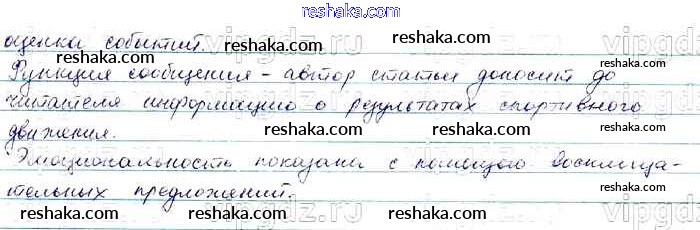 reshaka.com
оценка событий.
reshaka.com
reshaka.com
Функция сообщения - автор статьи доносит до
читателя информацию о результатах спортивного
движения.
reshaka.com
reshaka.com
Эмоциональность показана с помощью восклица-
reshaka.com
reshaka.com
тельных предложений.
reshaka.com
reshaka.com
reshaka.com